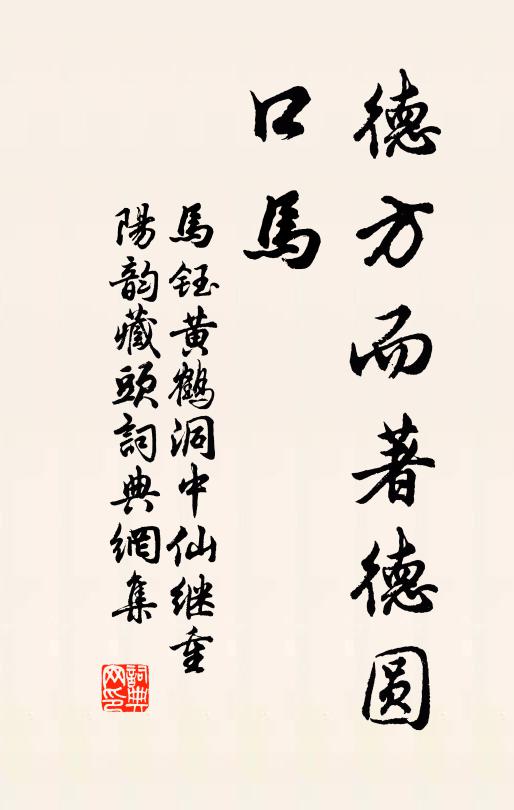 德方而著德圆
口馬
馬鈺黄鶴洞中仙继重
陽韵藏頭詞典網集
詞典网印